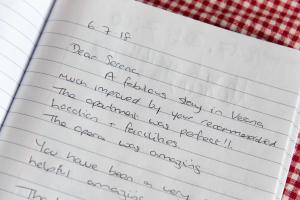 6.7.18
Dear Serena
A fabulous stay in Verona
Much improved by your recommended
The apartment was perfect!!
Location + facilities.
The opera was amazing
You have been a very
helpful amazing
The